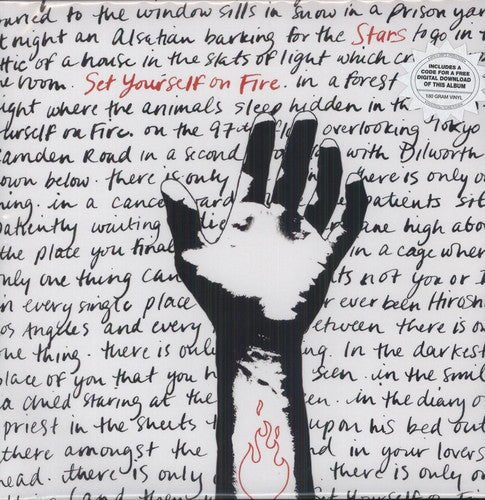 turned to the window sills in snow in a prison yar
t night an Alsatian barking for the Stars to go in t
ttic of a house in the slats of light which cr
he room. Set Yourself on Fire. in a forest
ight where the animals sleep hidden in th
urself on Fire. on the 97th fl overlooking Tokyo
Camden Road in a second with Dilworth
own below. there is only here is only o
hing. in a cance ard patients sit
patiently waiting die ane high abo
the place you final in a cage wher
nly one thing can ts not you or I
in every single place r ever been Hirosh
os Angeles and every etween there is o
ne thing. there is only ng. In the darkest
place of you that you h seen. in the smil
a child staring at the en. in the diary o
priest in the sheets t upon his bed out
there amongst the d in your lovers
head. there is only there is only o
INCLUDES A
CODE FOR A FREE
DIGITAL DOWNLOAD
OF THIS ALBUM
180 GRAM VINYL